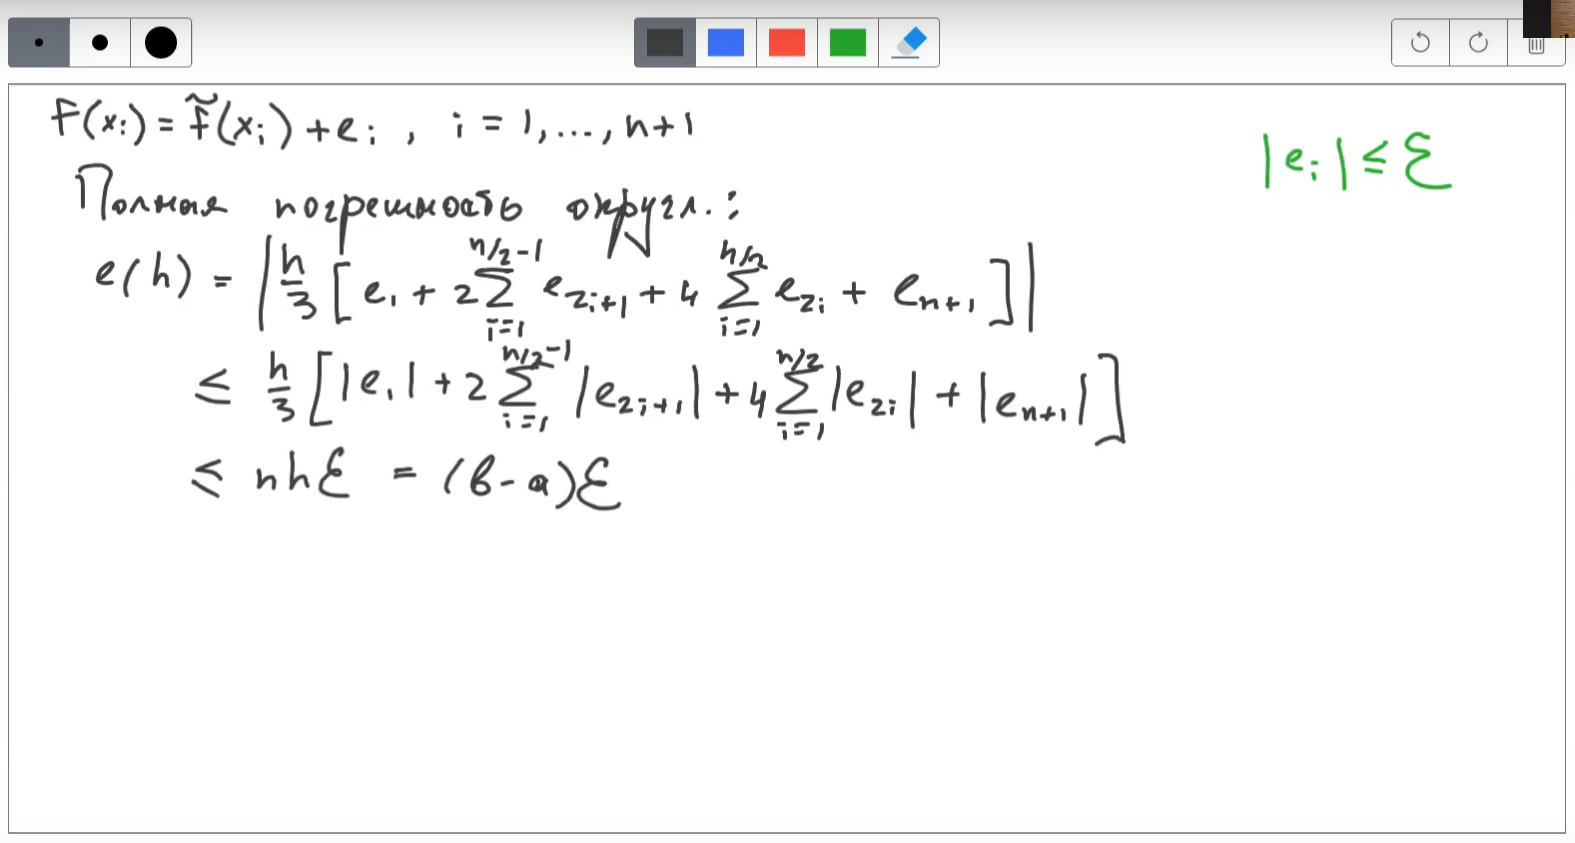 f(xᵢ) = f̃(xᵢ) + eᵢ , i = 1,..., n+1
|eᵢ| ≤ ε
Полная погрешность округл. :
e(h) = | h/3 [ e₁ + 2 ∑_{i=1}^{n/2-1} e_{2i+1} + 4 ∑_{i=1}^{n/2} e_{2i} + e_{n+1} ] |
≤ h/3 [ |e₁| + 2 ∑_{i=1}^{n/2-1} |e_{2i+1}| + 4 ∑_{i=1}^{n/2} |e_{2i}| + |e_{n+1}| ]
≤ nhε = (b-a)ε